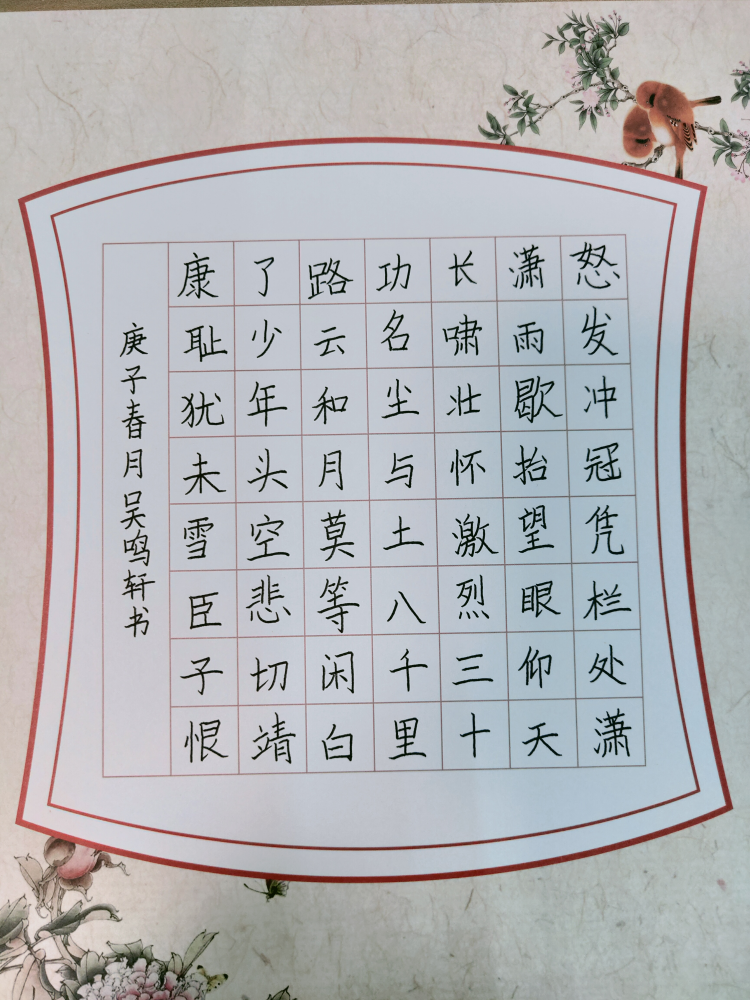 怒发冲冠凭栏处潇
潇雨歇抬望眼仰天
长啸壮怀激烈三十
功名尘与土八千里
路云和月莫等闲白
了少年头空悲切靖
康耻犹未雪臣子恨
庚子春月吴鸣轩书